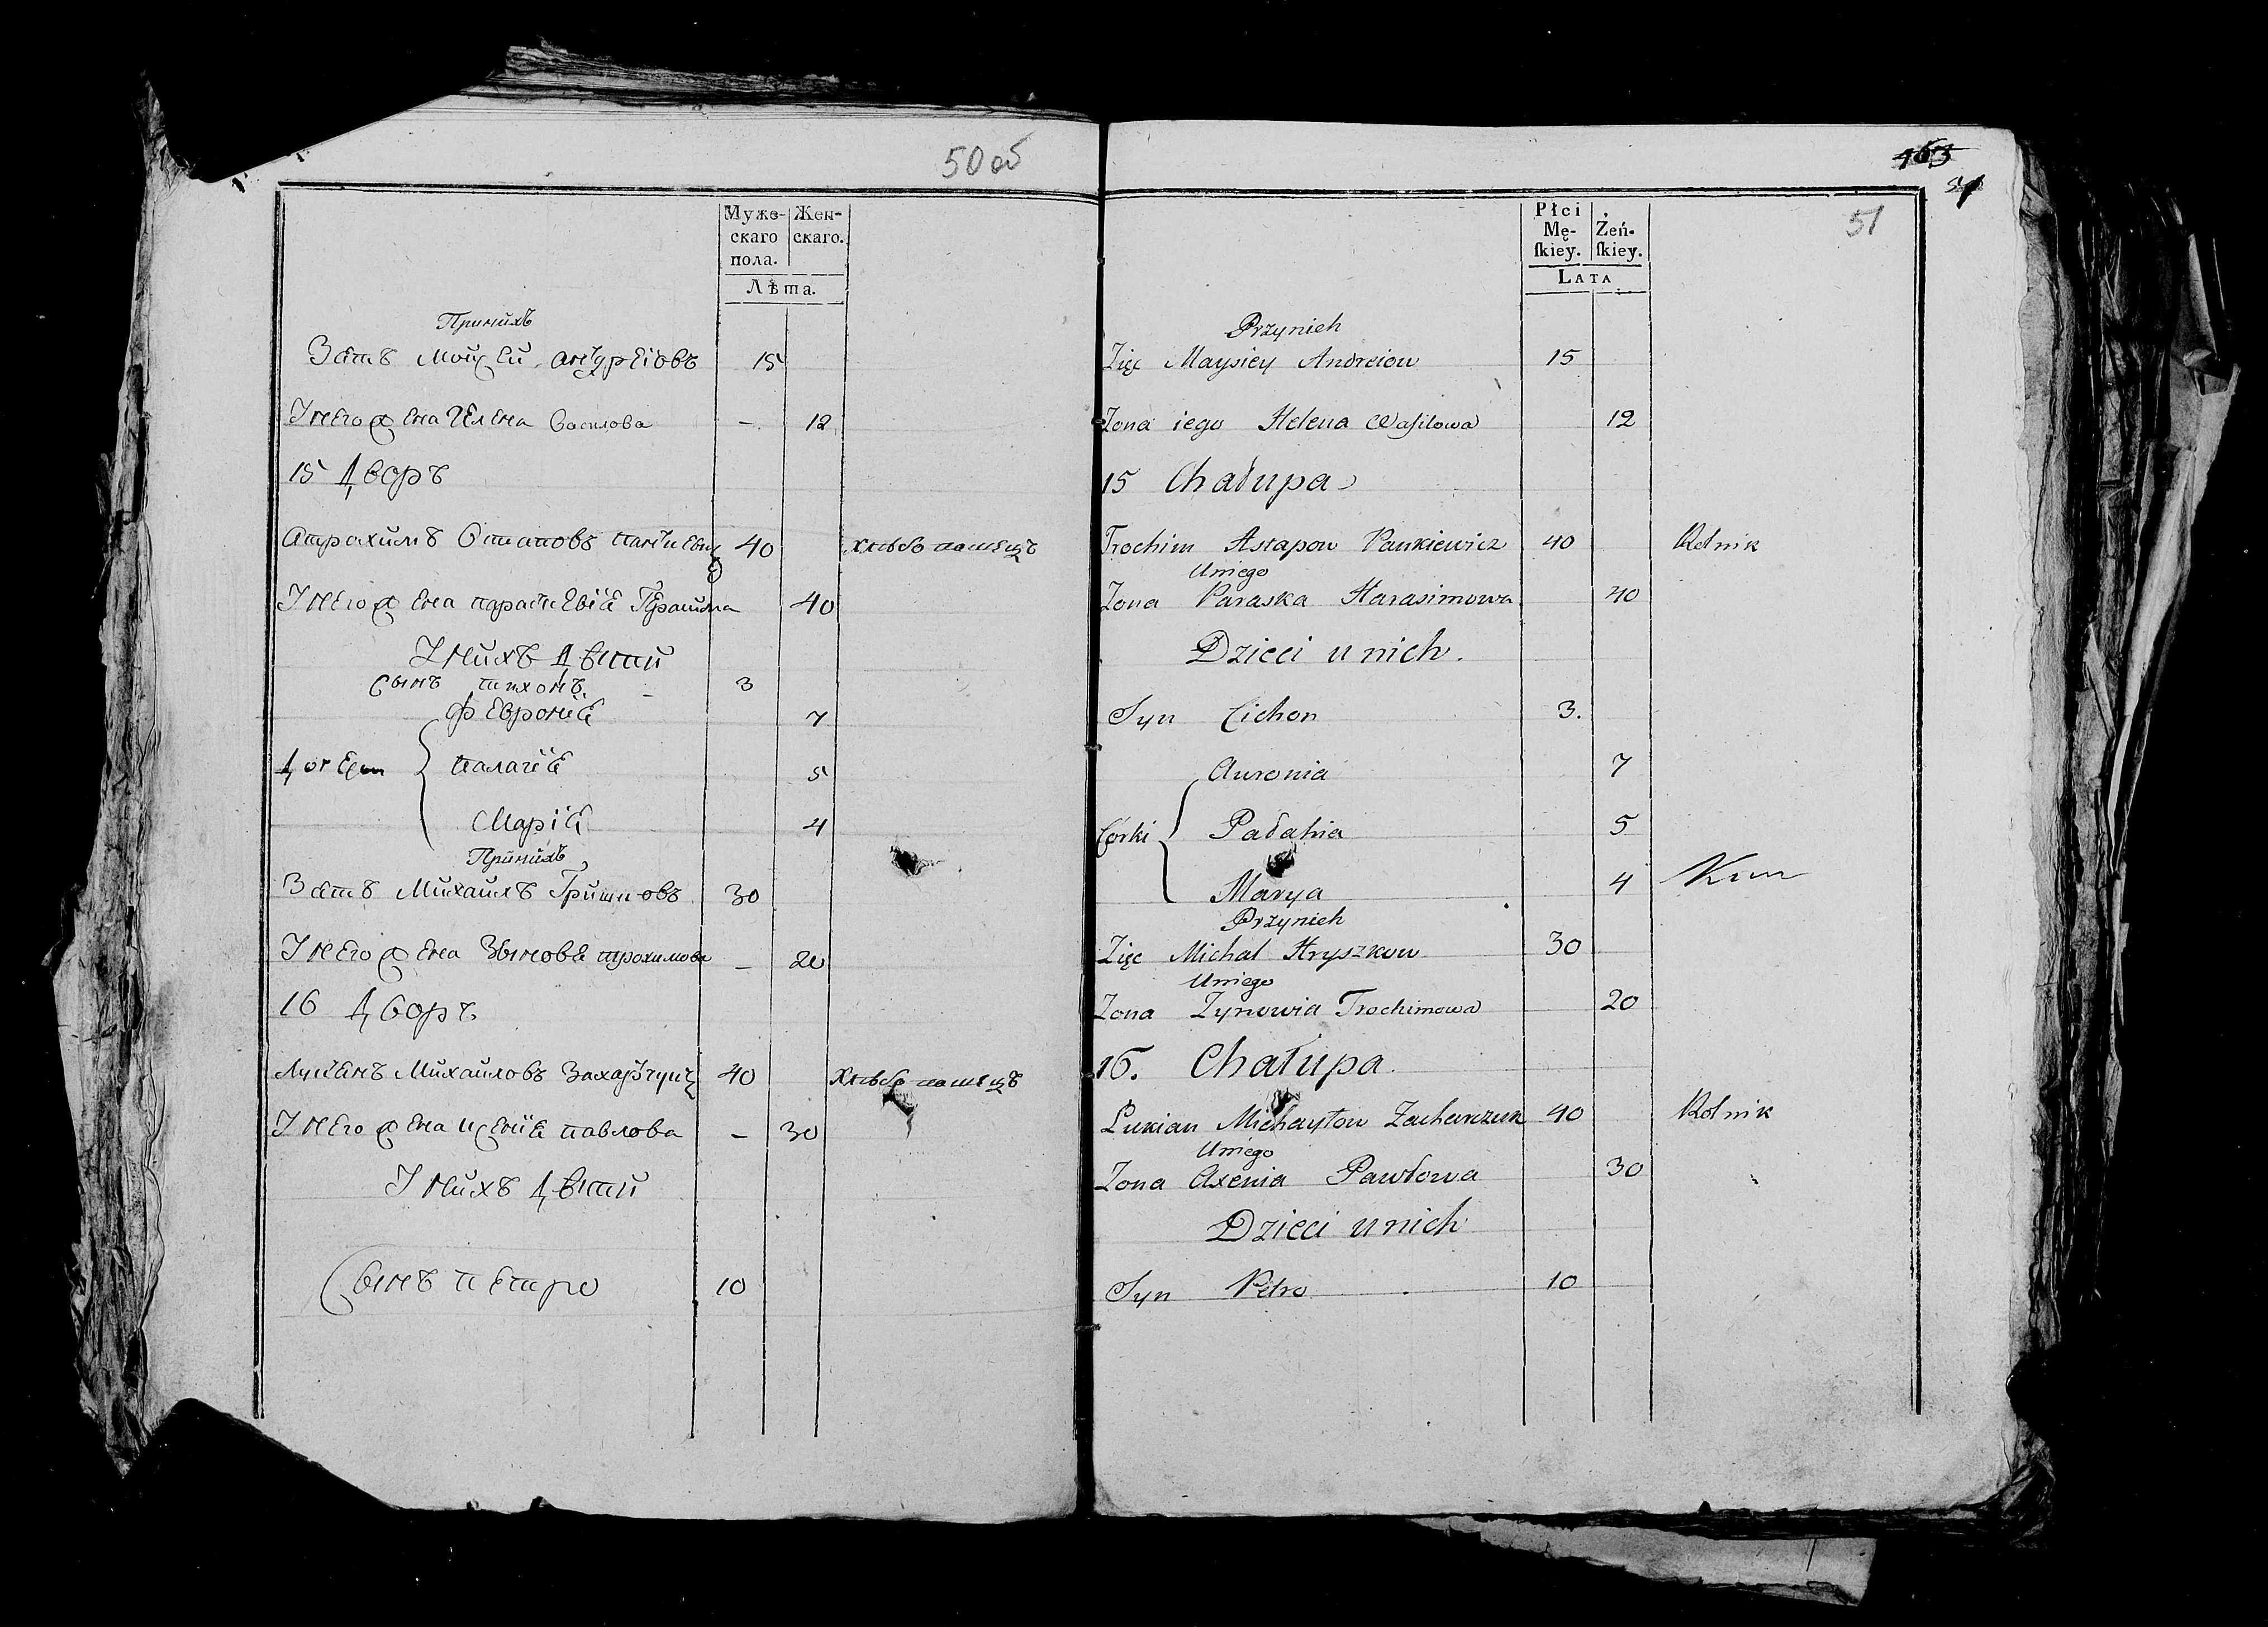 50 об
Муже-
скаго
пола.
Жен-
скаго.
Лѣта.
Принихъ
Зять Моисей Андреіовъ 15
У него жена Гелена Василова - 12
15 Дворъ
Атрахимъ Остаповъ Панкевич 40 хлѣбопашецъ
У него жена Параскевія Герасимова 40
У нихъ дѣти
Сынъ Тихонъ - 3
Февронія 7
Дочери Палагія 5
Марія 4
Принихъ
Зять Михайлъ Гришковъ 30
У него жена Зѣновія Трохимова - 20
16 Дворъ
Лукіянъ Михайловъ Захарчукъ 40 хлѣбопашецъ
У него жена Ксенія Павлова - 30
У нихъ дѣти
Сынъ Петро 10
163
51
Płci
Mę-
ſkiey.
Żeń-
ſkiey.
LATA
Przynich
Zięc Maysiey Andreiow 15
Zona iego Helena Waſilowa 12
15 Chałupa
Trochim Astapow Pankiewicz 40 Rolnik
Uniego
Zona Paraska Harasimowa 40
Dzieci u nich.
Syn Cichon 3.
Auronia 7
Córki Pałahia 5
Marya 4
Przynich
Zięc Michal Hryszkow 30
Uniego
Zona Zynowia Trochimowa 20
16. Chałupa.
Lukian Michayłow Zacharczuk 40 Rolnik
Uniego
Zona Axenia Pawłowa 30
Dzieci u nich
Syn Petro 10